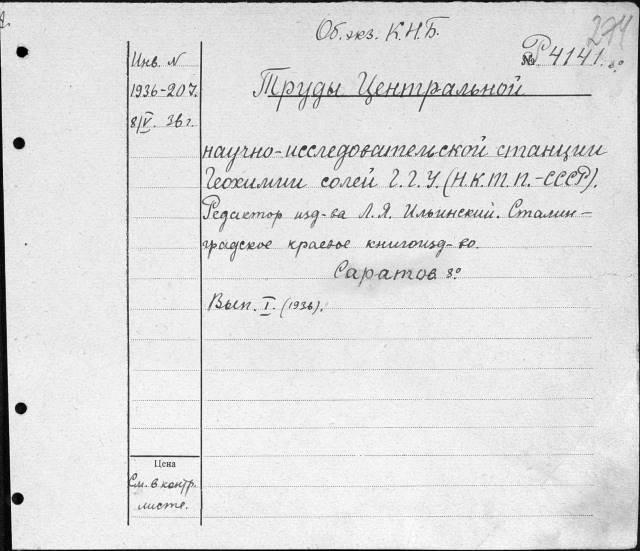 Об. экз. К.Н.Б.
274
Р4141. 8º
Инв. N
1936-207.
8/V. 36 г.
Труды Центральной
научно-исследовательской станции
Геохимии солей Г.Г.У. (Н.К.Т.П.-СССР).
Редактор изд-ва Л.Я. Ильинский. Сталин-
градское краевое книгоизд-во.
Саратов 8º
Вып. I. (1936).
Цена
См. в контр.
листе.